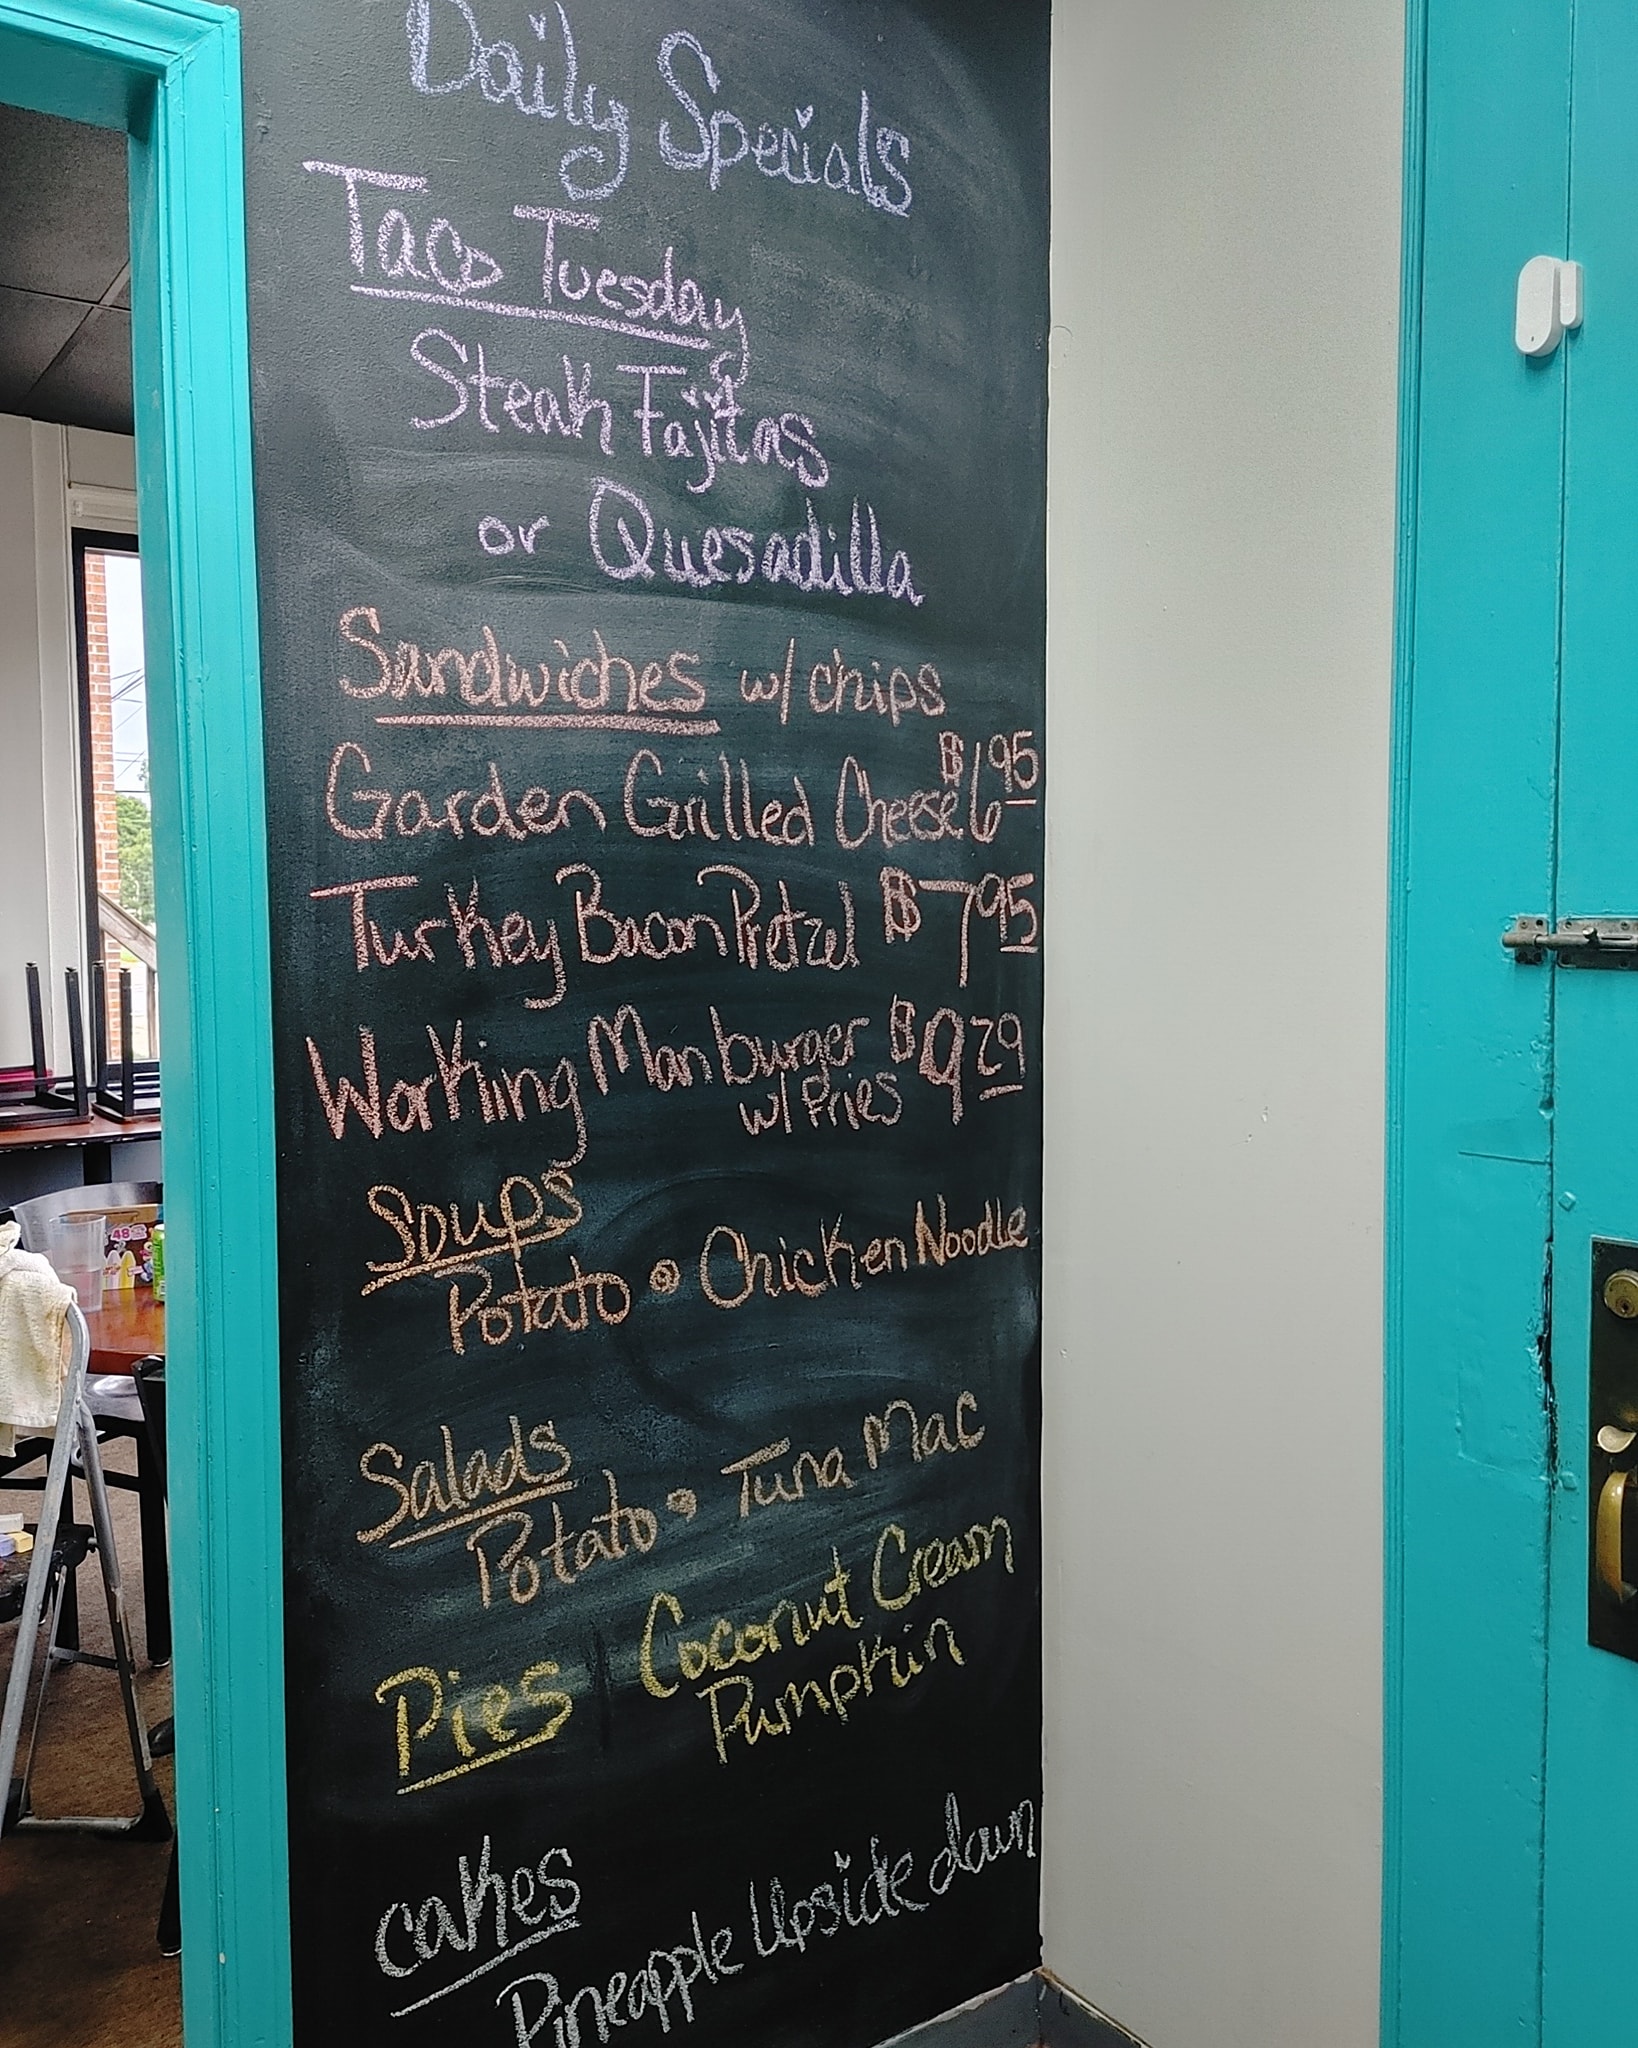 Daily Specials
Taco Tuesday
Steak Fajitas
or Quesadilla
Sandwiches w/ chips
Garden Grilled Cheese $6.95
Turkey Bacon Pretzel $7.95
Working Man burger $9.29
w/ Fries
Soups
Potato • Chicken Noodle
Salads
Potato • Tuna Mac
Pies Coconut Cream
Pumpkin
cakes
Pineapple Upside down
48